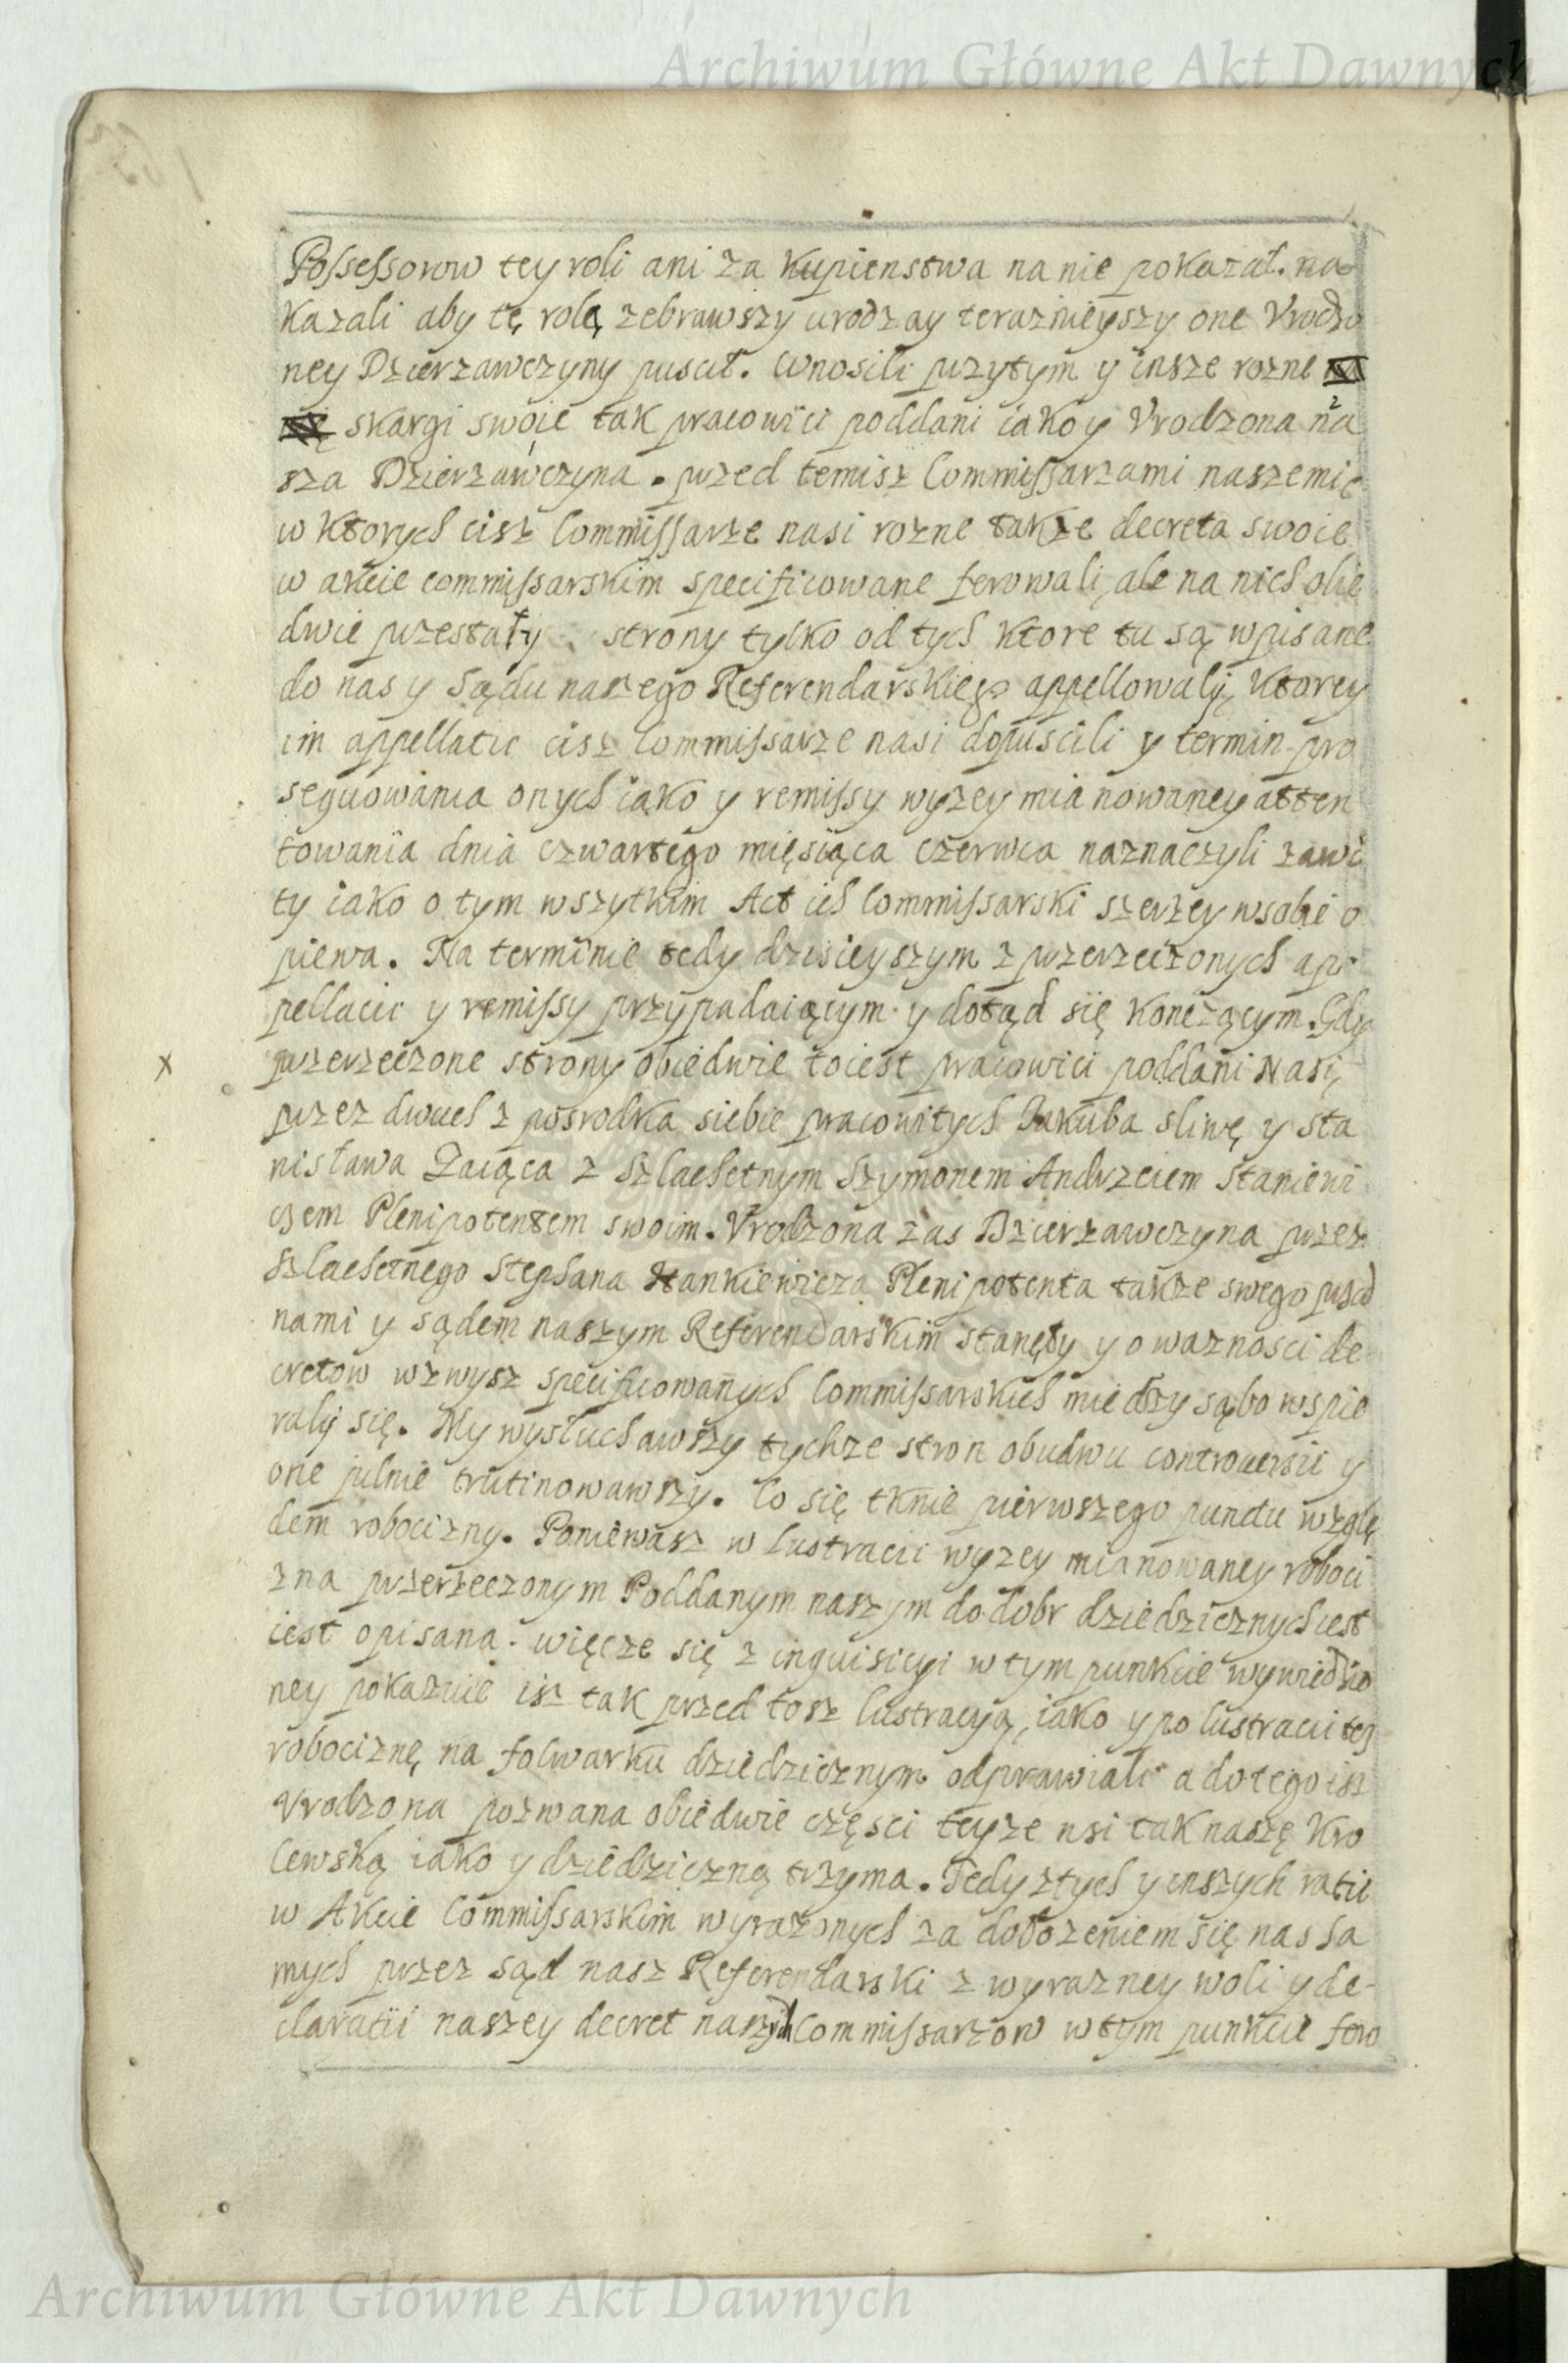 Archiwum Główne Akt Dawnych
Possessorow tey roli ani za kupienstwa na nie pokazał. na
kazali aby tę rolę zebrawszy urodzay teraznieyszy one Vrodzo
ney Dzierzawczyny puscił. wnosili przytym y insze rozne
skargi swoie tak pracowici poddani iako y Vrodzona na
sza Dzierzawczyna. przed temisz Commissarzami naszemi
w ktorych cisz Commissarze nasi rozne takze decreta swoie
w akcie commissarskim specificowane ferowali, ale na nich obie
dwie przestały strony tylko od tych ktore tu są wpisane
do nas y Sądu naszego Referendarskiego appellowali, ktorey
im appellatie cisz Commissarze nasi dopuscili y termin pro
sequowania onych iako y remissy wyzey mianowaney atten
towania dnia czwartego miesiąca Czerwca naznaczyli zawi
ty iako o tym wszytkim Act ich Commissarski szerzey w sobie o
piewa. Na terminie tedy dzisieyszym z przerzeczonych ap
pellacii y remissy przypadaiącym y dotąd się konczącym. Gdy
x przerzeczone strony obiedwie to iest pracowici poddani Nasi,
przez dwuch z posrodka siebie pracowitych Jakuba sliwę y sta
nisława Zaiąca z Szlachetnym Szymonem Andrzeiem Staniewi
czem Plenipotentem swoim. Vrodzona zas Dzierzawczyna przez
Szlachetnego Stephana Hankiewicza Plenipotenta takze swego przed
nami y sądem naszym Referendarskim stanęły y o waznosci de-
cretow wzwysz specificowanych Commissarskich miedzy sąbo wspie
rały się. My wysłuchawszy tychze stron obudwu controuersii y
one pilnie trutinowawszy. Co się tknie pierwszego punctu wzglę
dem robocizny. Poniewasz w Lustracii wyzey mianowaney roboci
zna przerzeczonym Poddanym naszym do dobr dziedzicznych iest
iest opisana. więcze się z inquisicyi w tym punkcie wywiedzio
ney pokazuie isz tak przed tosz lustracyą, iako y po lustracii tesz
robociznę na folwarku dziedzicznym odprawiali a do tego isz
Vrodzona pozwana obiedwie części teyze wsi tak naszę Kro
lewską iako y dziedziczną trzyma. Tedy z tych y inszych ratii
w Akcie Commissarskim wyrazonych za dołozeniem się nas sa
mych przez sąd nasz Referendarski z wyrazney woli y de-
claratii naszey decret naszych Commissarzow w tym punkcie fero
Archiwum Główne Akt Dawnych